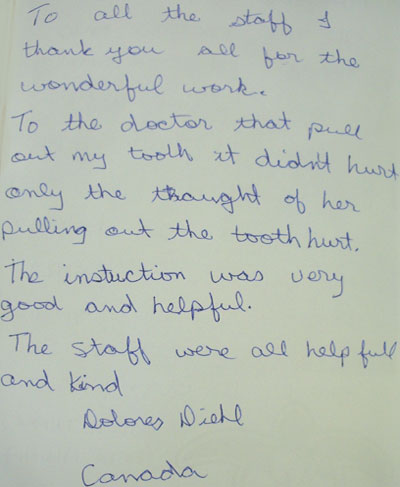 To all the staff I
thank you all for the
wonderful work.
To the doctor that pull
out my tooth it didn't hurt
only the thought of her
pulling out the tooth hurt.
The instuction was very
good and helpful.
The staff were all help full
and kind
Dolores Diehl
Canada